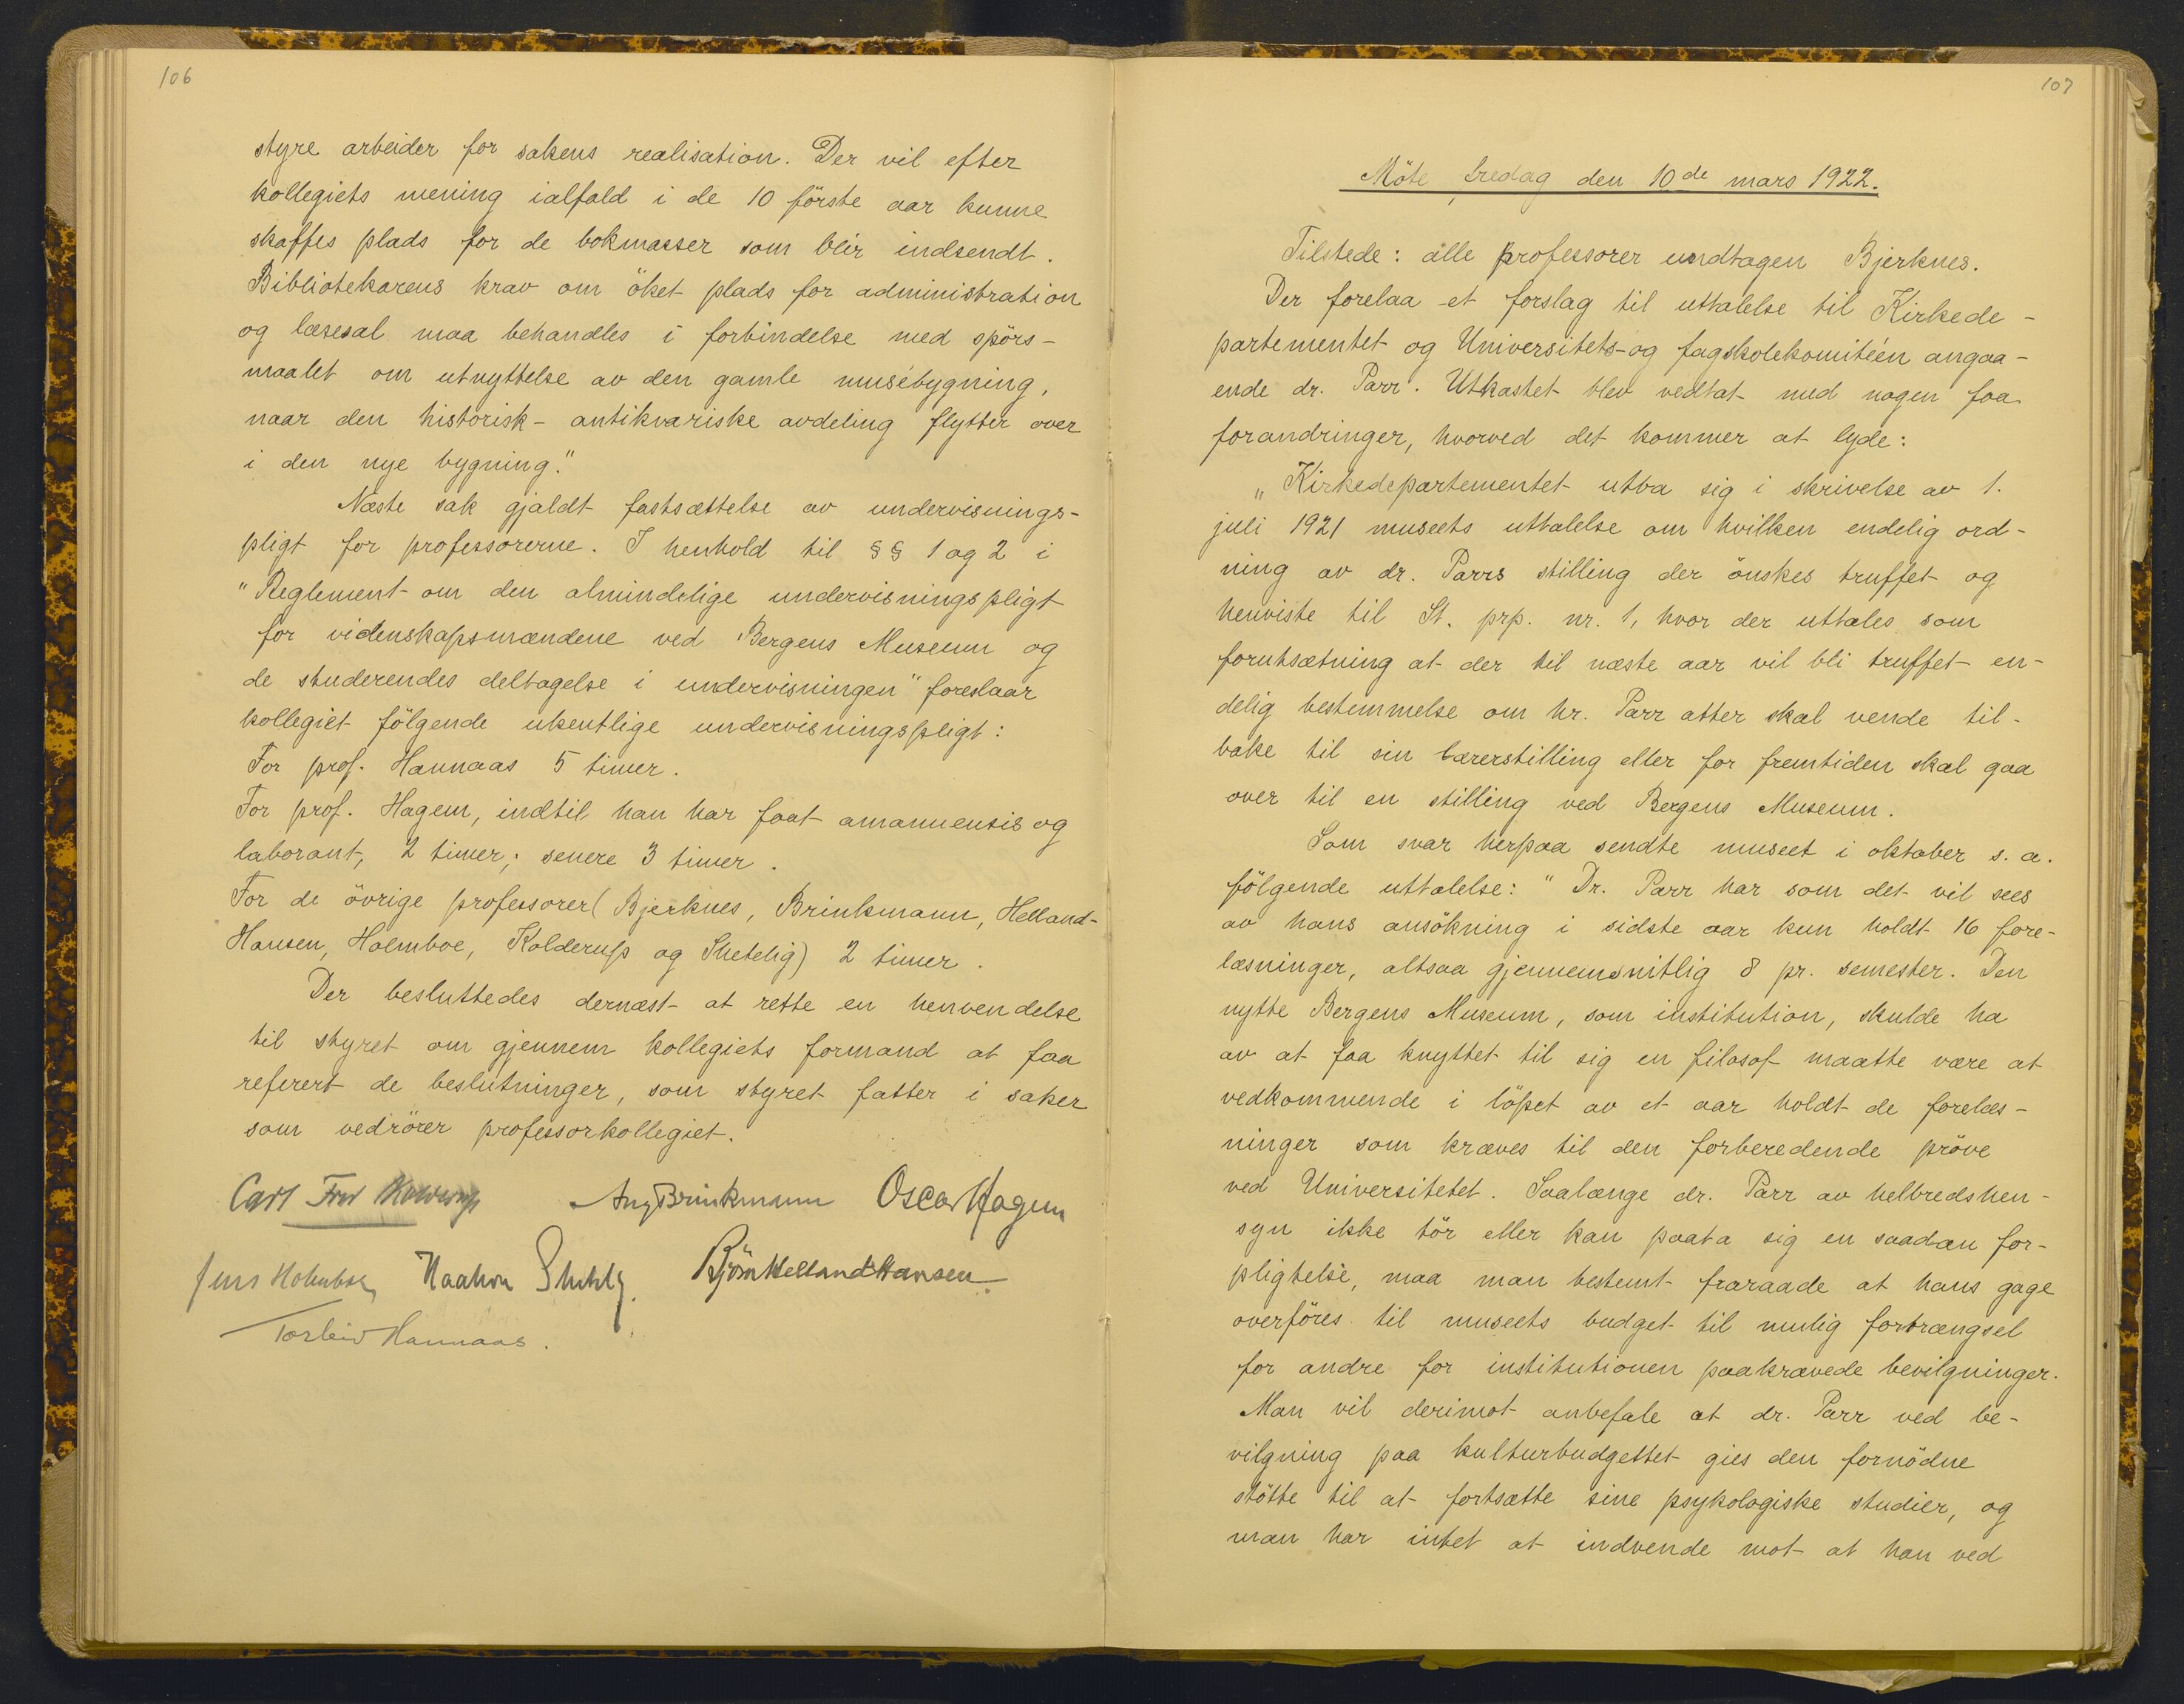 106
styre arbeider for sakens realisation. Der vil efter
kollegiets mening ialfald i de 10 förste aar kunne
skaffes plads for de bokmasser som blir indsendt.
Bibliotekarens krav om öket plads for administration
og læsesal maa behandles i forbindelse med spörs-
maalet om utnyttelse av den gamle musébygning,
naar den historisk-antikvariske avdeling flytter over
i den nye bygning."
Næste sak gjaldt fastsættelse av undervisnings-
pligt for professorerne. I henhold til §§ 1 og 2 i
"Reglement om den almindelige undervisningspligt
for videnskapsmændene ved Bergens Museum og
de studerendes deltagelse i undervisningen" foreslaar
kollegiet fölgende ukentlige undervisningspligt:
For prof. Hannaas 5 timer.
For prof. Hagem, indtil han har faat amanuensis og
laborant, 2 timer; senere 3 timer.
For de övrige professorer (Bjerknes, Brinkmann, Helland-
Hansen, Holmboe, Kolderup og Shetelig) 2 timer.
Der besluttedes dernæst at rette en henvendelse
til styret om gjennem kollegiets formand at faa
referert de beslutninger, som styret fatter i saker
som vedrörer professorkollegiet.
Carl Fred Kolderup Aug Brinkmann Oscar Hagem
Jens Holmboe Haakon Shetelig. Björn Helland Hansen.
Torleiv Hannaas.
107
Möte fredag den 10de mars 1922.
Tilstede: alle professorer undtagen Bjerknes.
Der forelaa et forslag til uttalelse til Kirkede-
partementet og Universitets- og fagskolekomitéen angaa-
ende dr. Parr. Utkastet blev vedtat med nogen faa
forandringer, hvorved det kommer at lyde:
„Kirkedepartementet utba sig i skrivelse av 1.
juli 1921 museets uttalelse om hvilken endelig ord-
ning av dr. Parrs stilling der önskes truffet og
henviste til St. prp. nr. 1, hvor der uttales som
forutsætning at der til næste aar vil bli truffet en-
delig bestemmelse om hr. Parr atter skal vende til-
bake til sin lærerstilling eller for fremtiden skal gaa
over til en stilling ved Bergens Museum.
Som svar herpaa sendte museet i oktober s. a.
fölgende uttalelse: "Dr. Parr har som det vil sees
av hans ansökning i sidste aar kun holdt 16 fore-
læsninger, altsaa gjennemsnitlig 8 pr. semester. Den
nytte Bergens Museum, som institution, skulde ha
av at faa knyttet til sig en filosof maatte være at
vedkommende i löpet av et aar holdt de forelæs-
ninger som kræves til den forberedende pröve
ved Universitetet. Saalænge dr. Parr av helbredshen-
syn ikke tör eller kan paata sig en saadan for-
pligtelse, maa man bestemt fraraade at hans gage
overföres til museets budget til mulig fortrængsel
for andre for institutionen paakrævede bevilgninger.
Man vil derimot anbefale at dr. Parr ved be-
vilgning paa kulturbudgettet gies den fornödne
stötte til at fortsætte sine psykologiske studier, og
man har intet at indvende mot at han ved